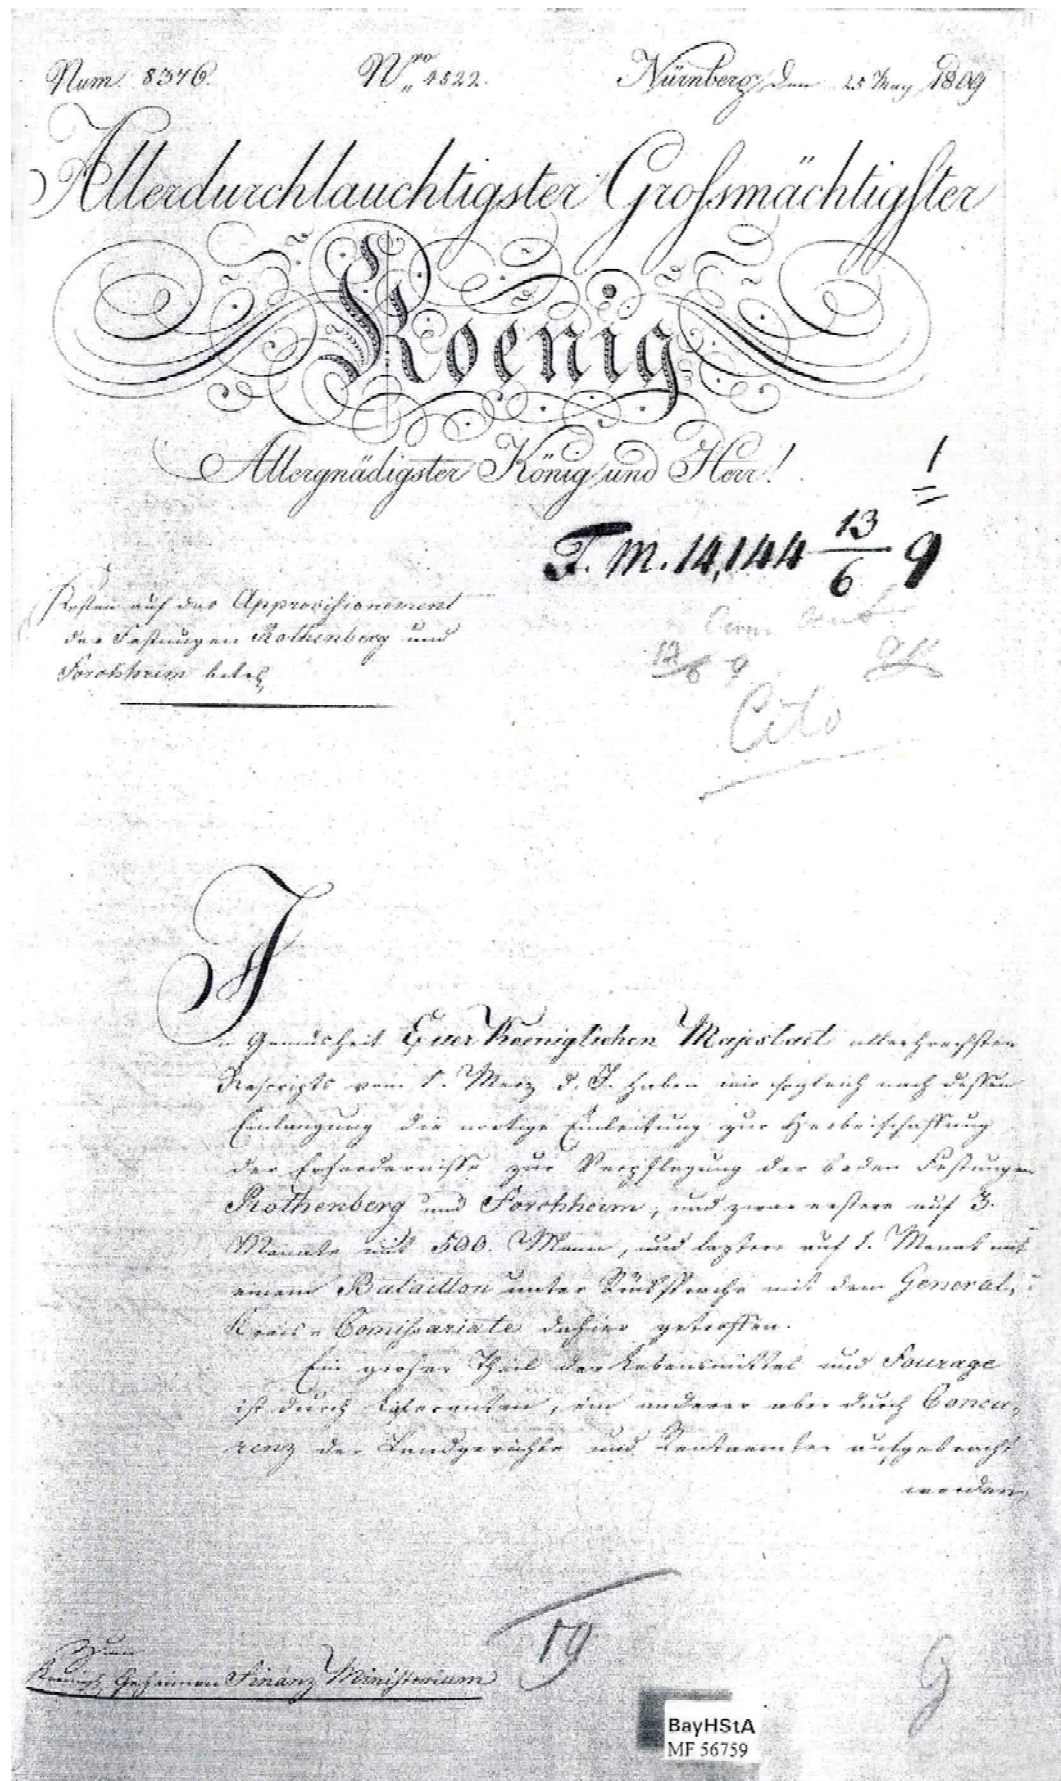 Num. 8376. Nro 4522. Nürnberg, den 25 May 1809
Allerdurchlauchtigster Grosmächtigster
Koenig
Allergnädigster König und Herr!
1
F. M. 14,144 13/6 9
Kosten auf das Approvisionement
der Festungen Rothenberg und
Forchheim betr.
Cito
In Gemäsheit Euer Koeniglichen Majestaet allerhoechsten
Rescripts vom Merz d. J. haben wir sogleich nach dessen
Einlangung die noetige Einleitung zur Herbeischaffung
der Erfordernisse zur Verpflegung der beden Festungen
Rothenberg und Forchheim, und zwar erstere auf 3.
Monate mit 500. Mann, und leztere auf 1. Monat mit
einem Bataillon unter Rücksprache mit dem General-
Kreis-Comissariate dahier getroffen.
Ein groser Theil der Lebensmittel und Fourage
ist durch Liferanten, ein anderer aber durch Concu-
renz der Landgerichte und Rentaemter aufgebracht
worden,
Zum
Königl. Geheimen Finanz Ministerium
19
9
BayHStA
MF 56759